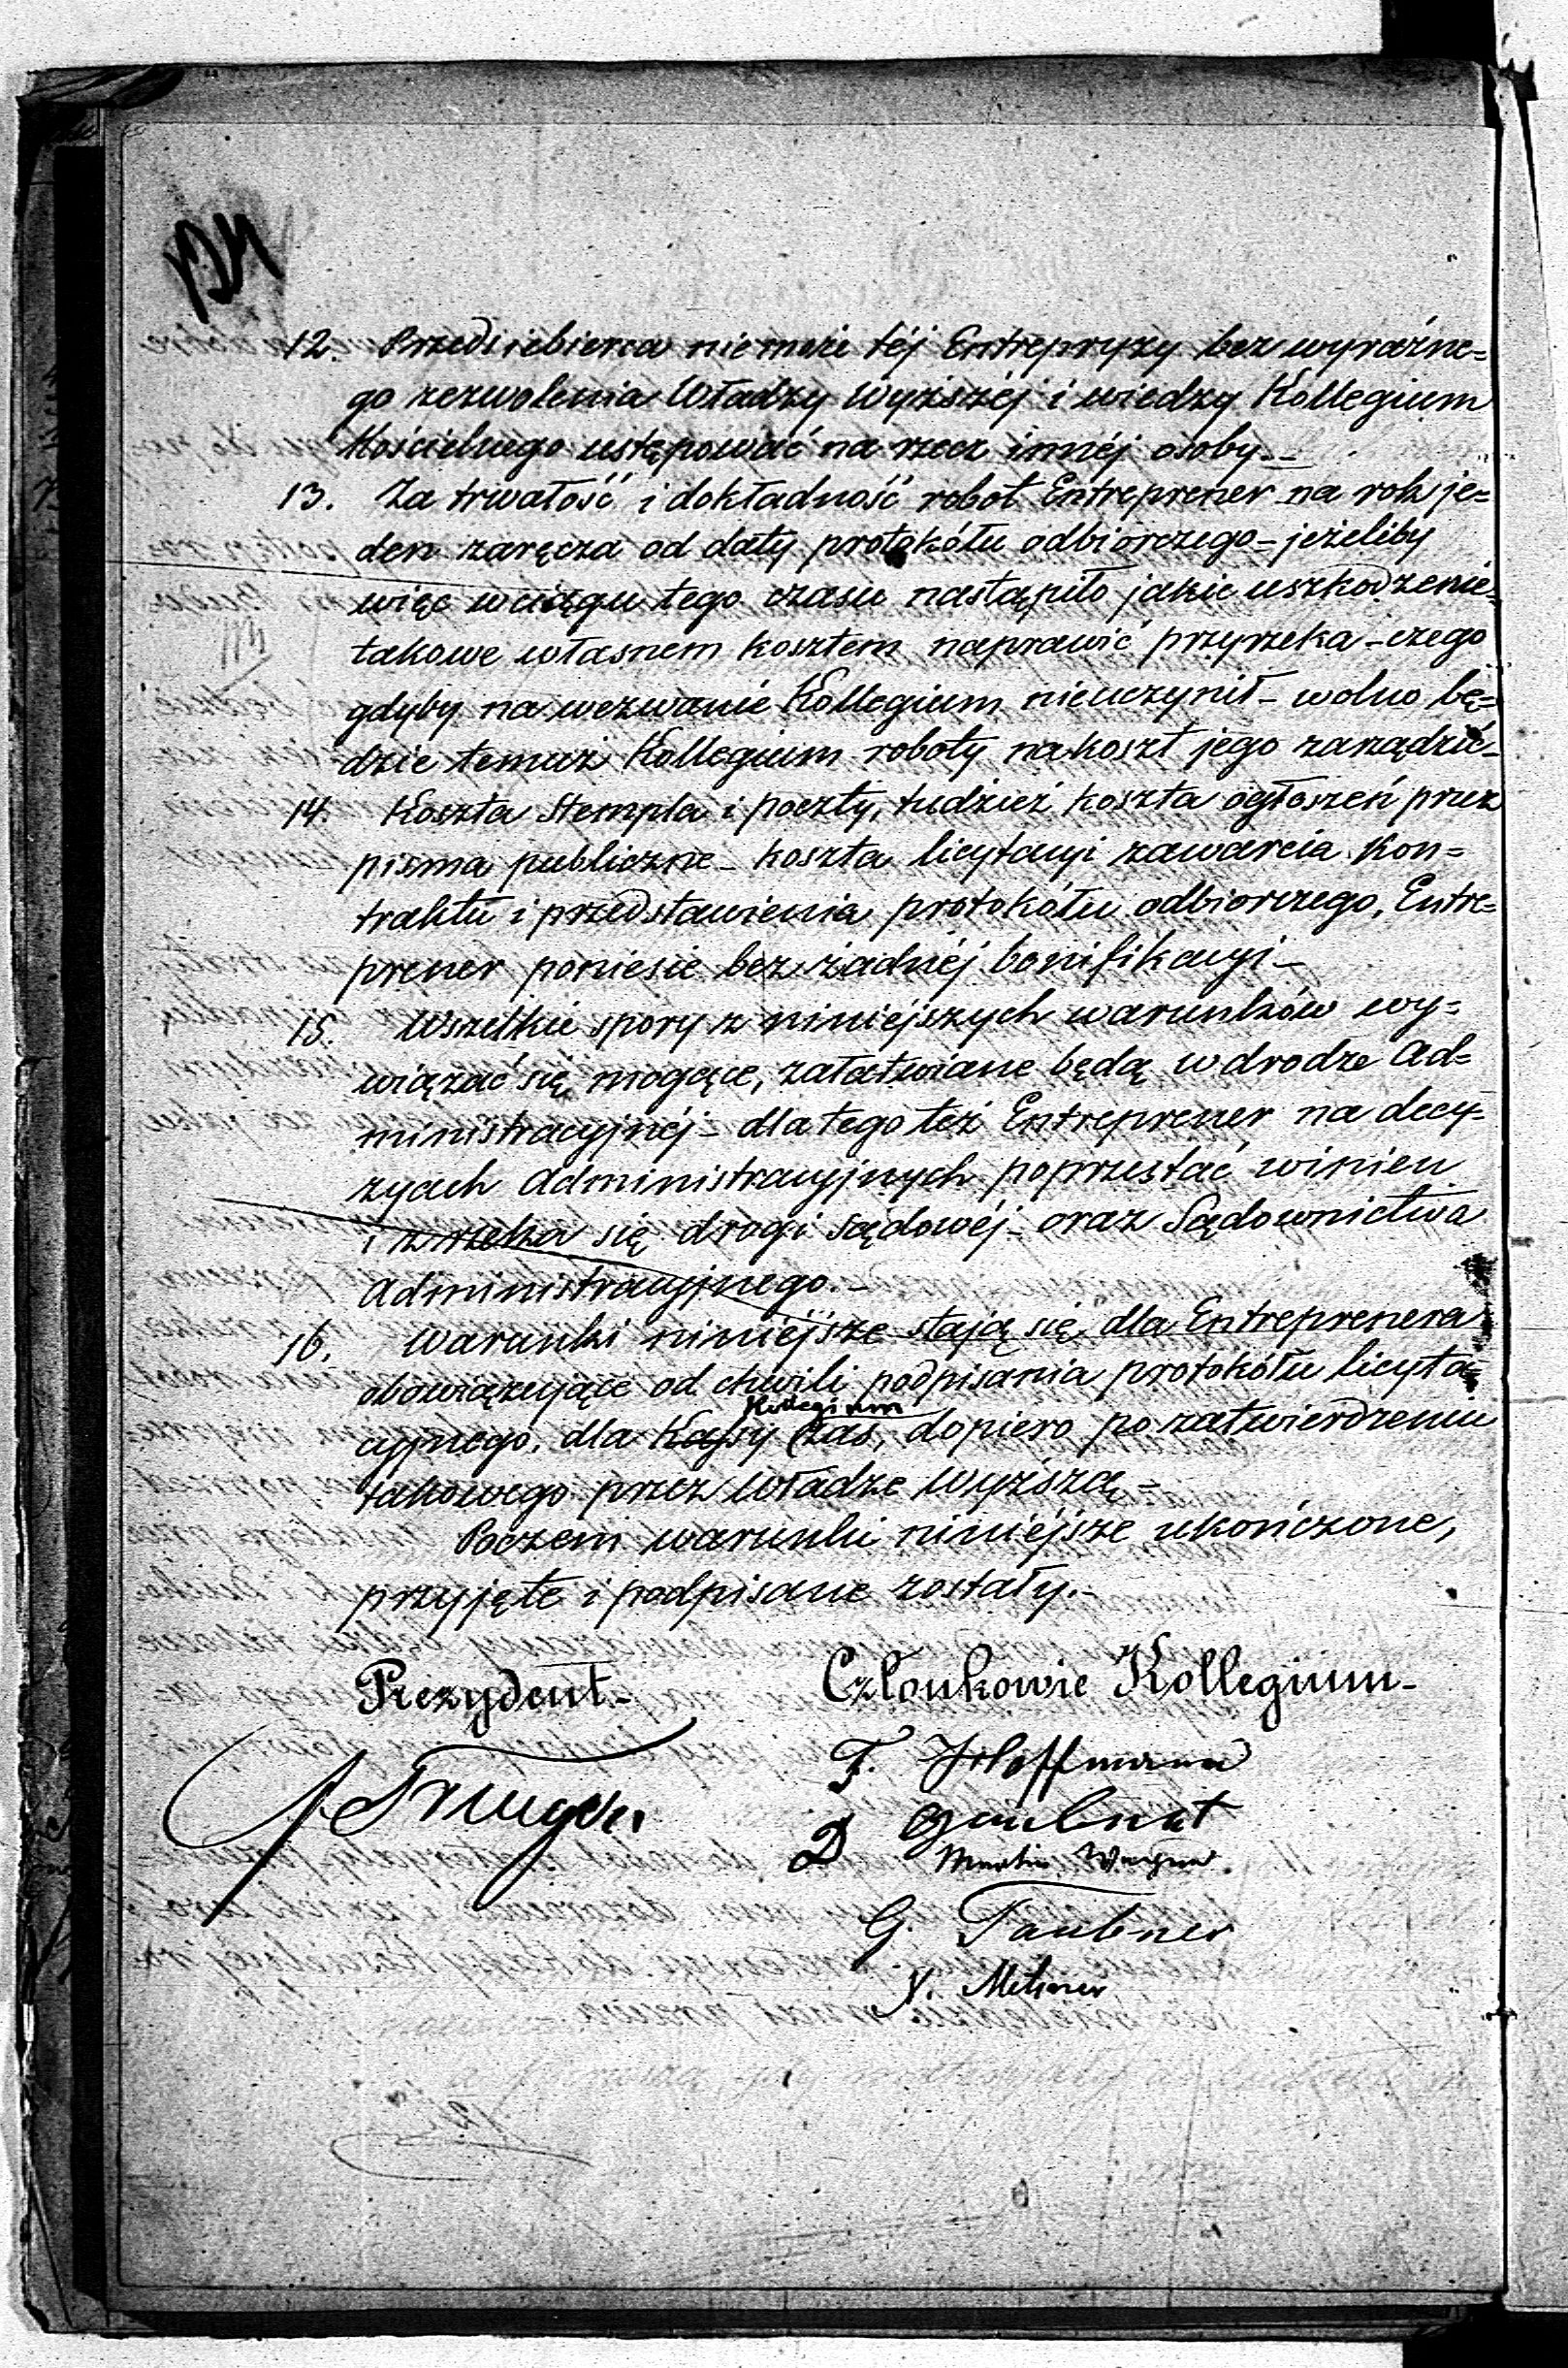 124
12. Przedsiebierca niemoże téj Entrepryzy bez wyraźne=
go zezwolenia Władzy Wyższéj i wiedzy Kollegium
Kościelnego ustępować na rzecz innéj osoby.–
13. Za trwałość i dokładność robot Entreprener na rok je=
den zaręcza od daty protokółu odbiorczego – jeżeliby
więc wciągu tego czasu nastąpiło jakie uszkodzenie –
takowe własnem kosztem naprawić przyrzeka – czego
gdyby na wezwanie Kollegium nieuczynił – wolno bę=
dzie temuż Kollegium roboty nakoszt jego zarządzić –
14. Koszta Stempla i poczty, tudzież koszta ogłoszeń przez
pisma publiczne – koszta licytacyi zawarcia Kon=
traktu i przedstawienia protokółu odbiorczego, Entre=
prener poniesie bez żadnéj bonifikacyi –
15. Wszelkie spory z niniejszych warunków wy=
wiązać się mogące, załatwiane będą w drodze Ad=
ministracyjnéj – dla tego też Entreprener na decy=
zyach Administracyjnych poprzestać winien
i zrzeka się drogi sądowéj – oraz Sądownictwa
Administracyjnego. –
16. Warunki niniejsze stają się dla Entreprenera
obowiązujące od chwili podpisania protokółu licyta=
Kollegium
cyjnego, dla Kassy zaś, dopiero po zatwierdzeniu
takowego przez Władze Wyższą –
Poczem warunki niniejsze ukończone,
przyjęte i podpisane zostały. –
Prezydent – Członkowie Kollegium –
F. Hoffmann
D Gaulnat
Martin Wagner.
G. Taubner